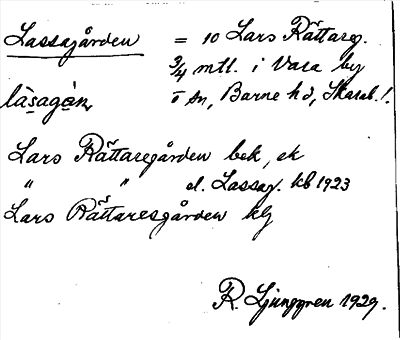 Lassagården = 10 Lars Rättareg.
3/4 mtl. i Vara by
låsagån, o sn, Barne hd, Skarab. l.
Lars Rättaregården bek, ek
" " el. Lassag. kb 1923
Lars Rättaresgården klj
R. Ljunggren 1929.